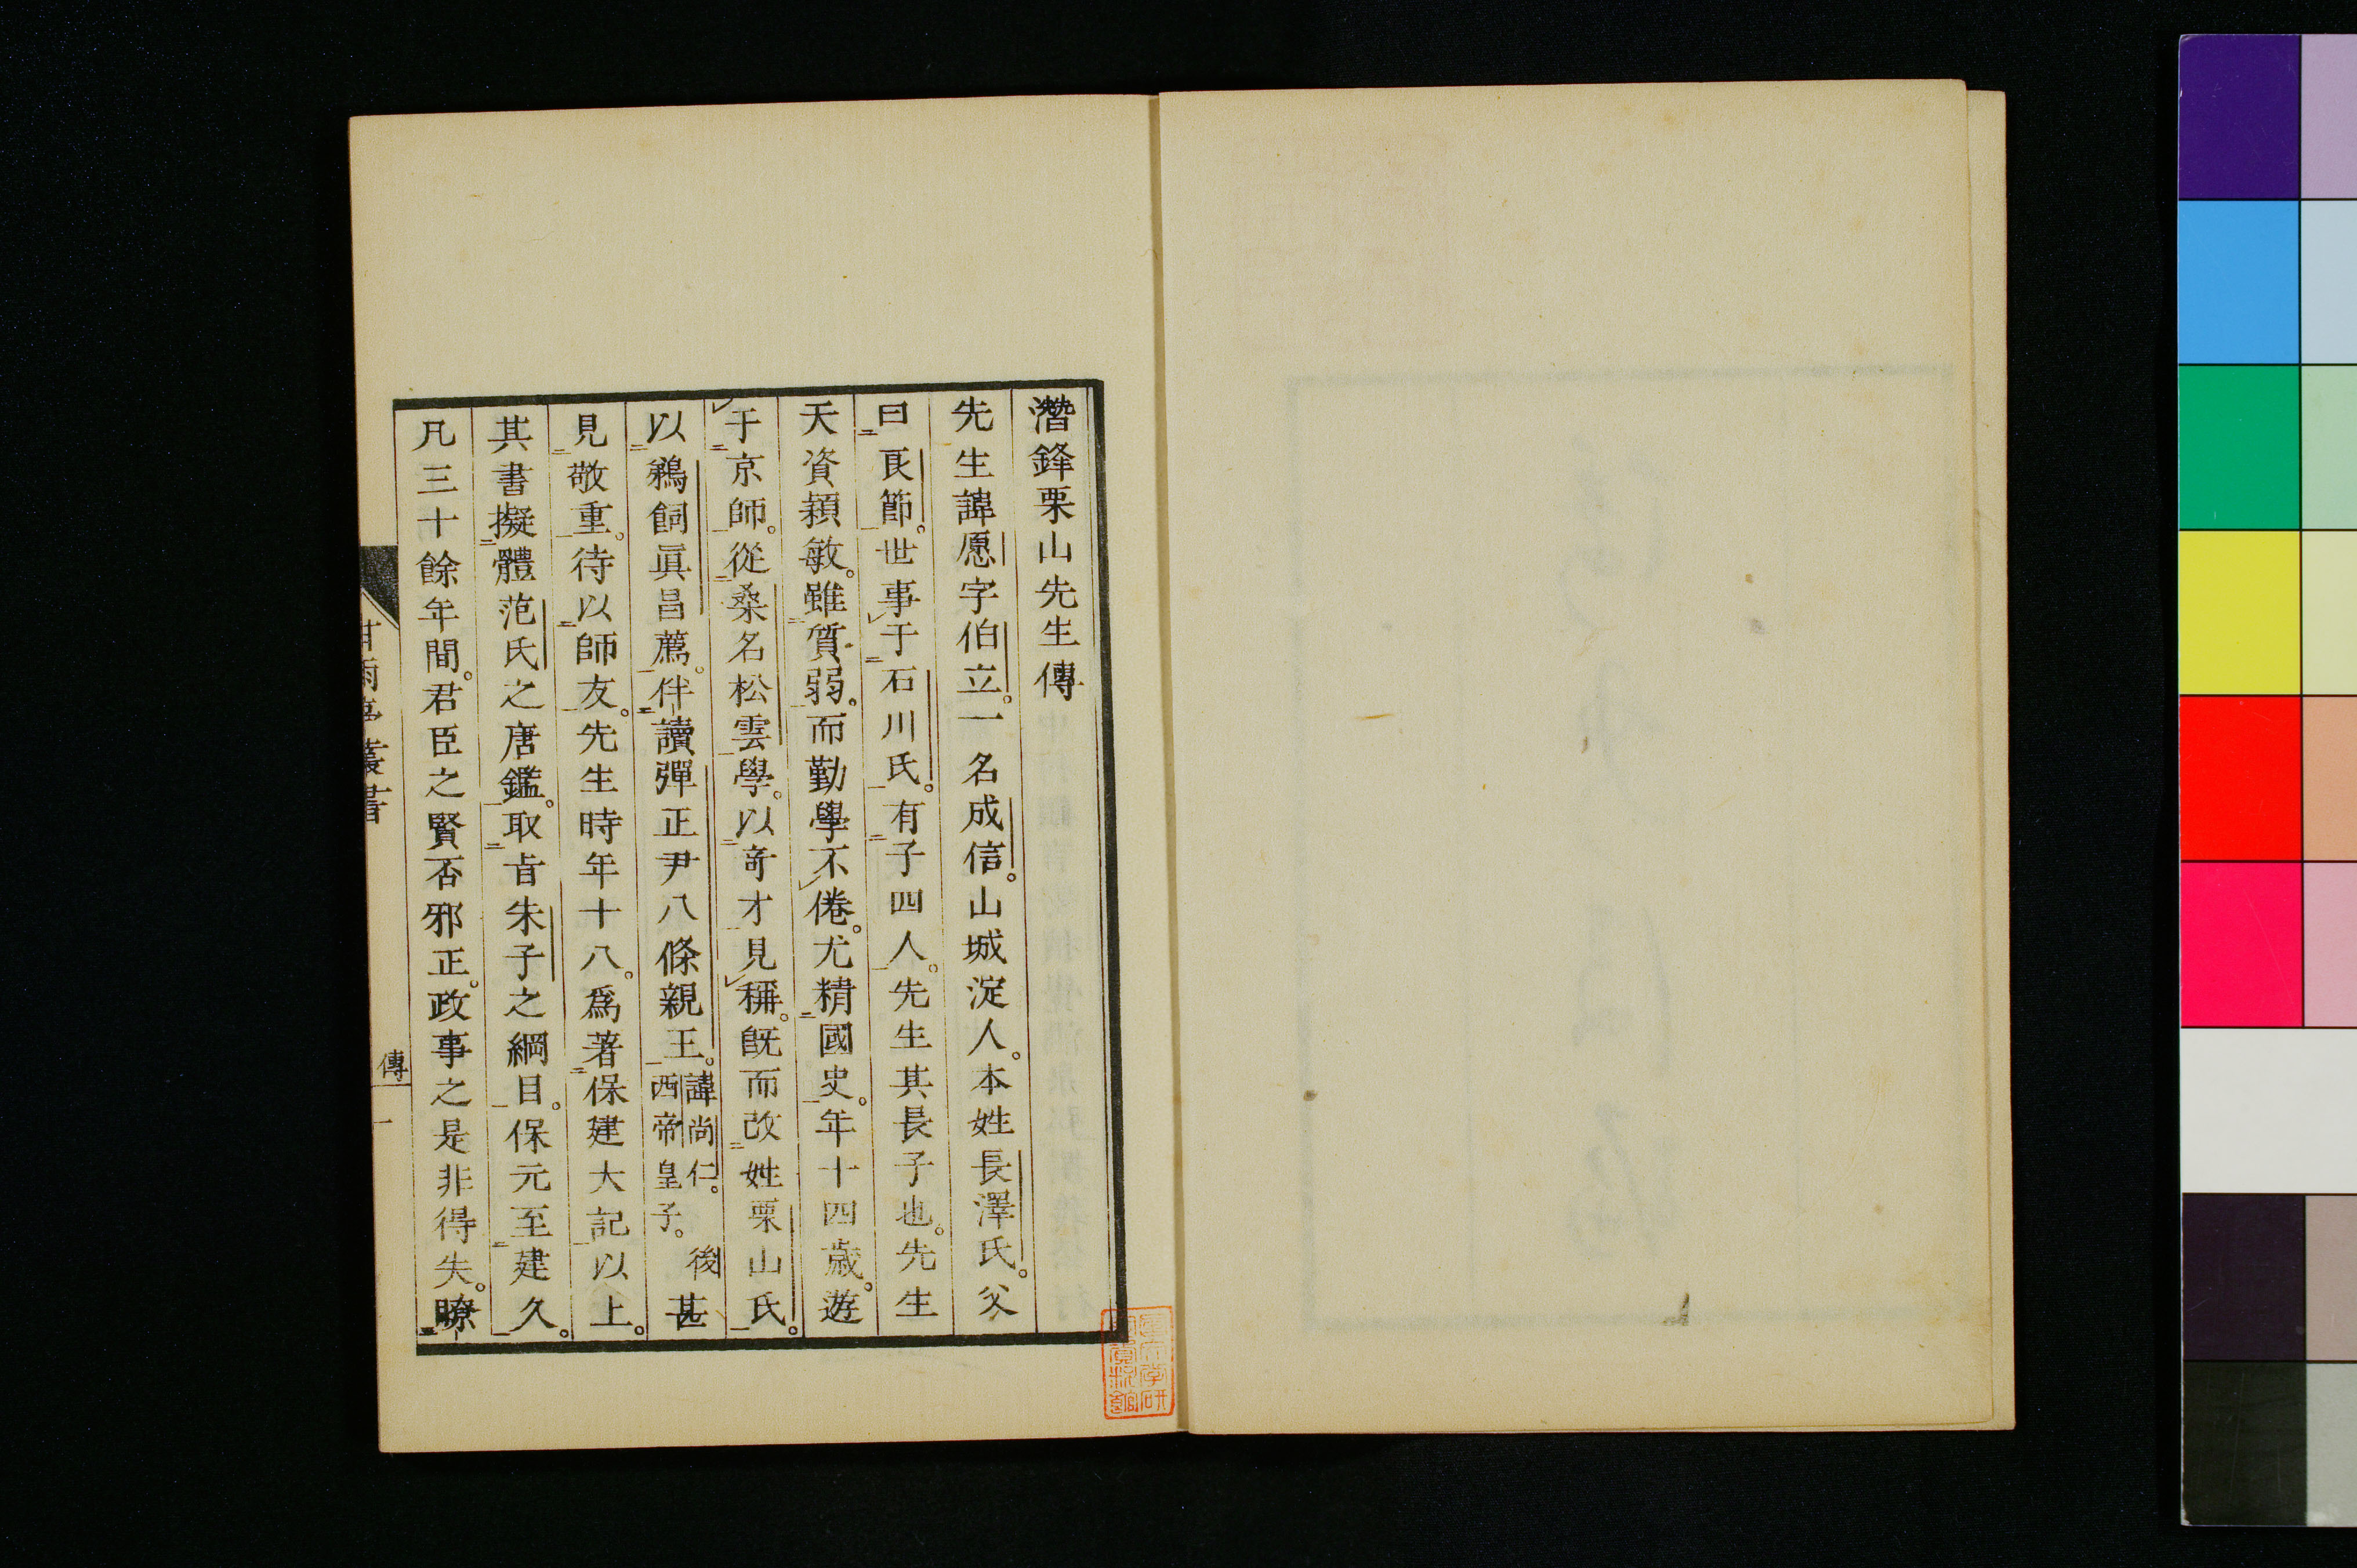 潛鋒栗山先生傳
先生諱愿字伯立。一名成信。山城淀人。本姓長澤氏。父
曰良節。世事于石川氏。有子四人。先生其長子也。先生
天資穎敏。雖質弱。而勤學不倦。尤精國史。年十四歲。遊
于京師。從桑名松雲學。以奇才見稱。既而改姓栗山氏。
以鵜飼眞昌薦。伴讀彈正尹八條親王。諱尚仁。後西帝皇子。甚
見敬重。待以師友。先生時年十八。爲著保建大記以上。
其書擬體范氏之唐鑑。取旨朱子之綱目。保元至建久。
凡三十餘年間。君臣之賢否邪正。政事之是非得失。瞭
甘雨亭叢書
傳
一